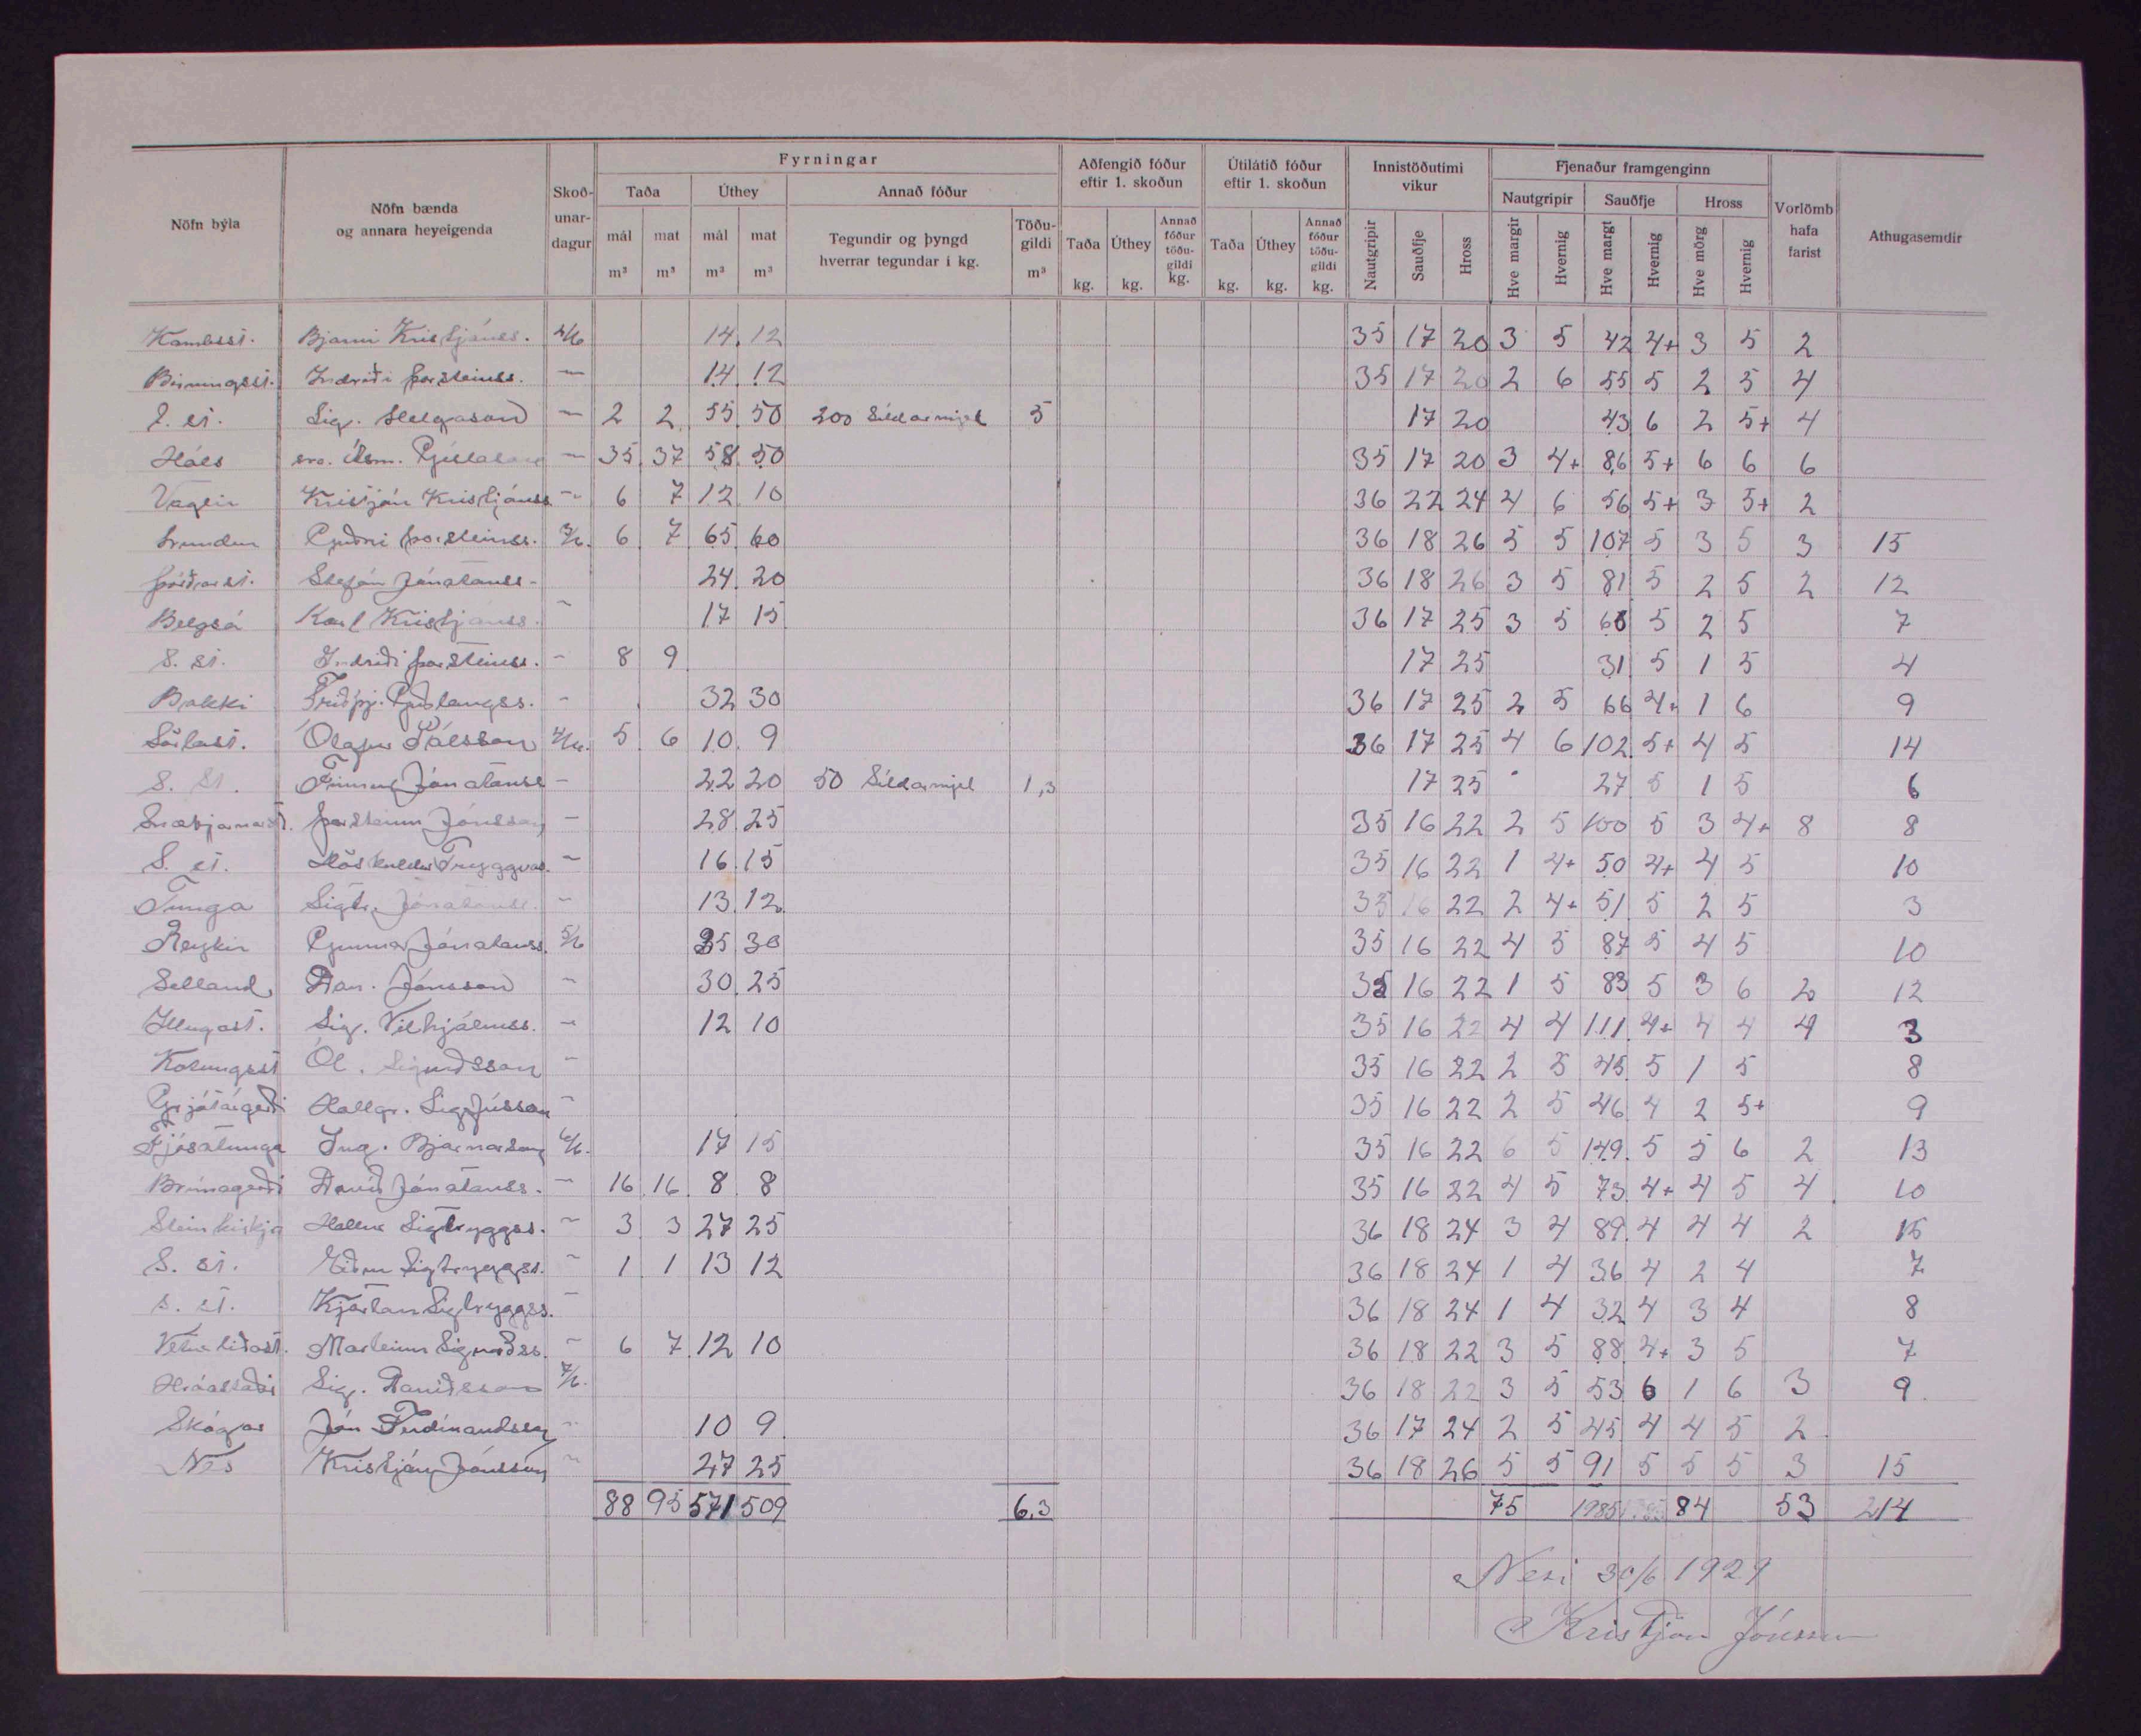 Fyrningar
Aðfengið fóður eftir 1. skoðun
Útilátið fóður eftir 1. skoðun
Innistöðutimi vikur
Fjenaður framgenginn
Nöfn býla
Nöfn bænda og annara heyeigenda
Skoð-unar-dagur
Taða
Úthey
Annað fóður
Nautgripir Sauðfje Hross
Vorlömb hafa farist
Athugasemdir
mál m³ mat m³ mál m³ mat m³
Tegundir og þyngd hverrar tegundar í kg.
Töðu-gildi m³
Taða kg. Úthey kg. Annað fóður töðu-gildi kg.
Taða kg. Úthey kg. Annað fóður töðu-gildi kg.
Nautgripir Sauðfje Hross
Hve margir Hvernig Hve margt Hvernig Hve mörg Hvernig
Kambsst. Bjarni Kristjánss. 2/6 14 12 35 17 20 3 5 42 4+ 3 5 2
Birningsst. Indriði Þorsteinss. — 14 12 35 17 20 2 6 55 5 2 5 4
S. st. Sig. Helgason — 2 2 55 50 200 Síldarmjel 5 17 20 43 6 2 5+ 4
Háls sra. Ásm. Gíslason — 35 37 58 50 35 17 20 3 4+ 86 5+ 6 6 6
Vaglir Kristján Kristjánss. — 6 7 12 10 36 22 24 4 6 56 5+ 3 5+ 2
Lundur Guðni Þorsteinss. 3/6. 6 7 65 60 36 18 26 5 5 107 5 3 5 3 15
Þórðarst. Stefán Jónatanss - 24 20 36 18 26 3 5 81 5 2 5 2 12
Belgsá Karl Kristjánss. — 17 15 36 17 25 3 5 68 5 2 5 7
S. st. Indriði Þorsteinss. — 8 9 17 25 31 5 1 5 4
Bakki Friðþj. Guðlaugss. — 32 30 36 17 25 2 5 66 4+ 1 6 9
Sörlast. Ólafur Pálsson 4/6. 5 6 10 9 36 17 25 4 6 102 5+ 4 5 14
S. st. Finnur Jónatanss — 22 20 50 Síldarmjel 1,3 17 25 27 5 1 5 6
Snæbjarnarst. Þorsteinn Jónsson — 28 25 35 16 22 2 5 100 5 3 4+ 8 8
S. st. Höskuldur Tryggvas. — 16 15 35 16 22 1 4+ 50 4+ 4 5 10
Tunga Sigtr. Jónatanss. — 13 12 35 16 22 2 4+ 51 5 2 5 3
Reykir Gunnar Jónatanss. 5/6 35 30 35 16 22 4 5 87 5 4 5 10
Selland Dan. Jónsson — 30 25 35 16 22 1 5 83 5 3 6 2 12
Illugast. Sig. Vilhjálmss. — 12 10 35 16 22 4 4 111 4+ 4 4 4 3
Kotungsst Ól. Sigurðsson — 35 16 22 2 5 45 5 1 5 8
Grjótárgerði Hallgr. Sigfússon — 35 16 22 2 5 46 4 2 5+ 9
Fjósatunga Ing. Bjarnarson 6/6. 17 15 35 16 22 6 5 149 5 5 6 2 13
Brúnagerði Davíð Jónatanss. — 16 16 8 8 35 16 22 4 5 73 4+ 4 5 4 10
Steinkirkja Hallur Sigtryggss. — 3 3 27 25 36 18 24 3 4 89 4 4 4 2 15
S. st. Eiður Sigtryggss. — 1 1 13 12 36 18 24 1 4 36 4 2 4 7
s. st. Kjartan Sigtryggss. — 36 18 24 1 4 32 4 3 4 8
Veturliðast. Marteinn Sigurðss. — 6 7 12 10 36 18 22 3 5 88 4+ 3 5 7
Hróastaðir Sig. Davíðsson 7/6. 36 18 22 3 5 53 6 1 6 3 9
Skógar Jón Ferdinandsson — 10 9 36 17 24 2 5 45 4 4 5 2
Nes Kristján Jónsson — 27 25 36 18 26 5 5 91 5 5 5 3 15
88 95 571 509 6,3 75 1985 84 53 214
Nesi 30/6 1929
Kristján Jónsson